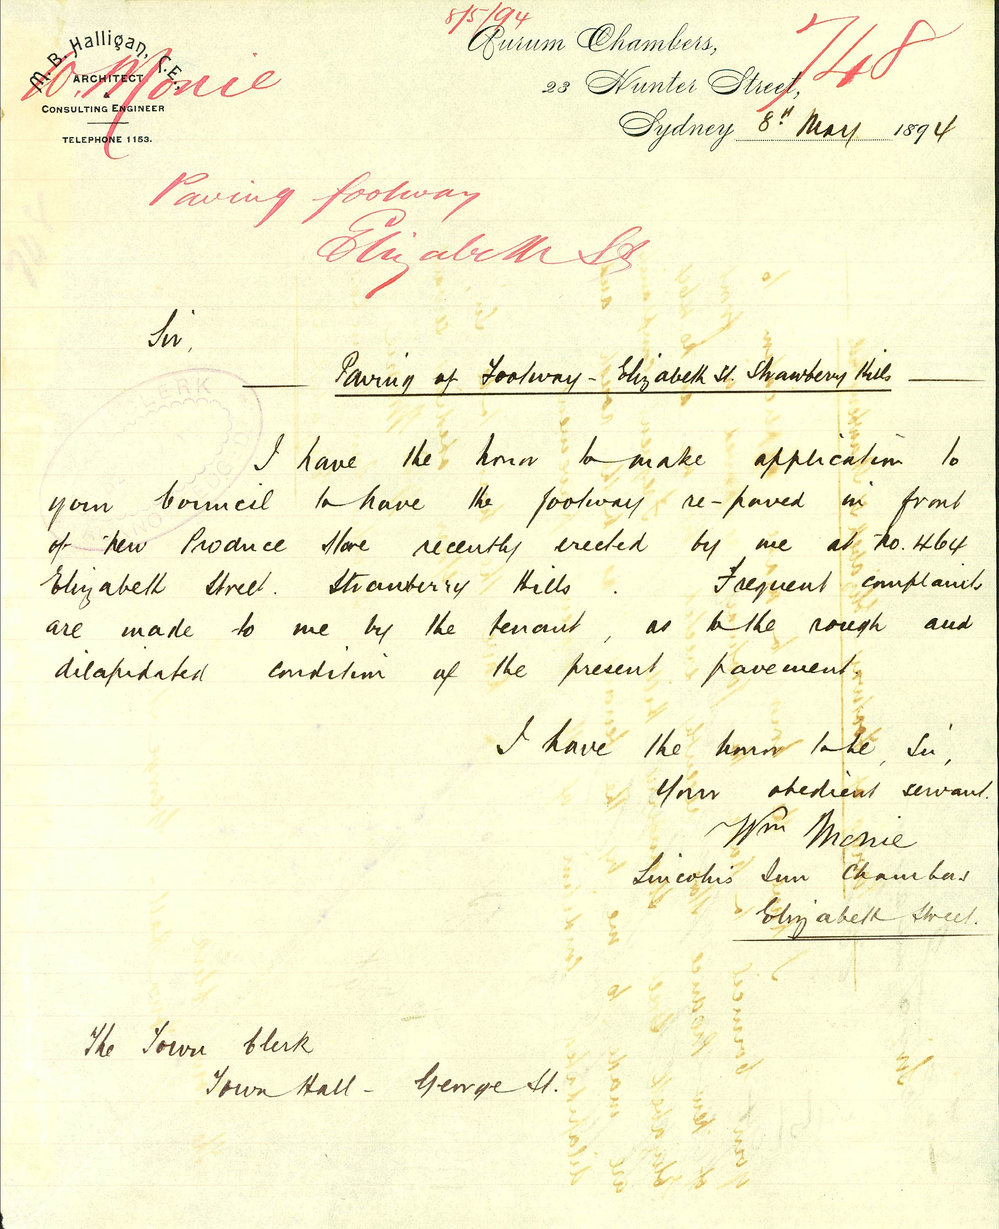 8/5/94
M. B. Halligan, C.E.,
ARCHITECT
&
CONSULTING ENGINEER
TELEPHONE 1153.
W. Monie
Aurum Chambers,
748
23 Hunter Street,
Sydney 8th May 1894
Paving footway
Elizabeth St
Sir,
Paving of Footway - Elizabeth St. Strawberry Hills
I have the honor to make application to
your Council to have the footway re-paved in front
of new Produce Store recently erected by me at No. 464
Elizabeth Street. Strawberry Hills. Frequent complaints
are made to me by the tenant, as to the rough and
dilapidated condition of the present pavement.
I have the honor to be, Sir,
Your obedient servant.
Wm Monie
Lincoln's Inn Chambers
Elizabeth Street.
The Town Clerk
Town Hall - George St.